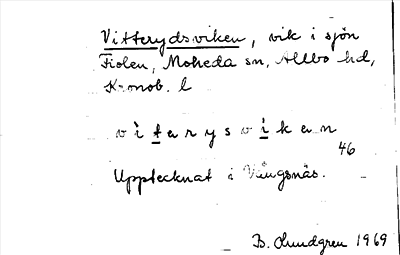 Vitterydsviken, vik i sjön
Fiolen, Moheda sn, Allbo hd,
Kronob. l
v ì t a r y s v i k e n
46
Upptecknat i Vångsnäs.
B. Lundgren 1969